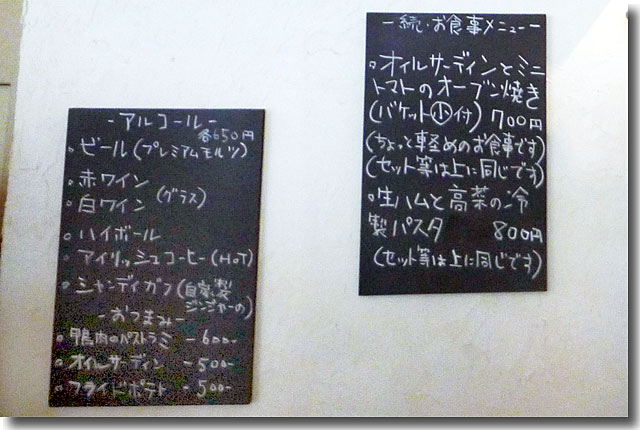 -アルコール-
各650円
。ビール(プレミアムモルツ)
。赤ワイン
(グラス)
。白ワイン
。ハイボール
。アイリッシュコーヒー(HOT)
。シャンディガフ(自家製
ジンジャーの)
-おつまみ-
。鴨肉のパストラミ -600-
。オイルサーディン -500-
。フライドポテト -500-
-続・お食事メニュー-
。オイルサーディンとミニ
トマトのオーブン焼き
(バケット小付) 700円
(ちょっと軽めのお食事です)
(セット等は上に同じです)
。生ハムと高菜の冷
製パスタ 800円
(セット等は上に同じです)